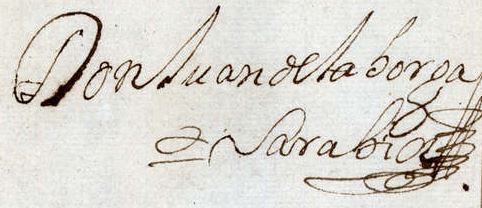 Don Juan de taborga
Sarabia